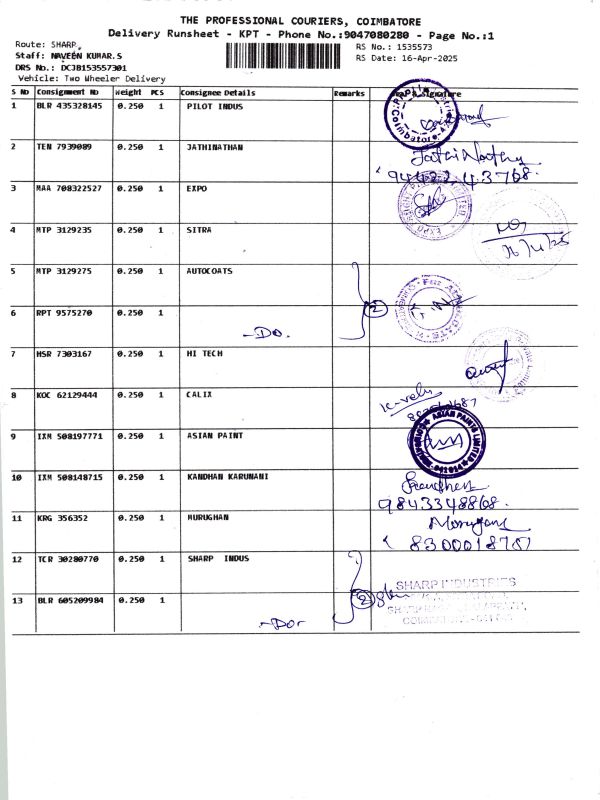 THE PROFESSIONAL COURIERS, COIMBATORE
Delivery Runsheet - KPT - Phone No.:9047080280 - Page No.:1
Route: SHARP,
Staff: NAVEEN KUMAR.S
DRS No.: DCJB153557301
Vehicle: Two Wheeler Delivery
RS No.: 1535573
RS Date: 16-Apr-2025
S No Consignment No Weight PCS Consignee Details Remarks Signature
1 BLR 435328145 0.250 1 PILOT INDUS
2 TEN 7939089 0.250 1 JATHINATHAN
3 MAA 708322527 0.250 1 EXPO
4 MTP 3129235 0.250 1 SITRA
5 MTP 3129275 0.250 1 AUTOCOATS
6 RPT 9575270 0.250 1 -Do. 2
7 HSR 7303167 0.250 1 HI TECH
8 KOC 62129444 0.250 1 CALIX K-velu
9 IXM 508197771 0.250 1 ASIAN PAINT ASIAN PAINTS LIMITED
10 IXM 508148715 0.250 1 KANDHAN KARUNANI
9843348868.
11 KRG 356352 0.250 1 MURUGHAN Murugan
12 TCR 30280770 0.250 1 SHARP INDUS SHARP INDUSTRIES
13 BLR 605209984 0.250 1 2